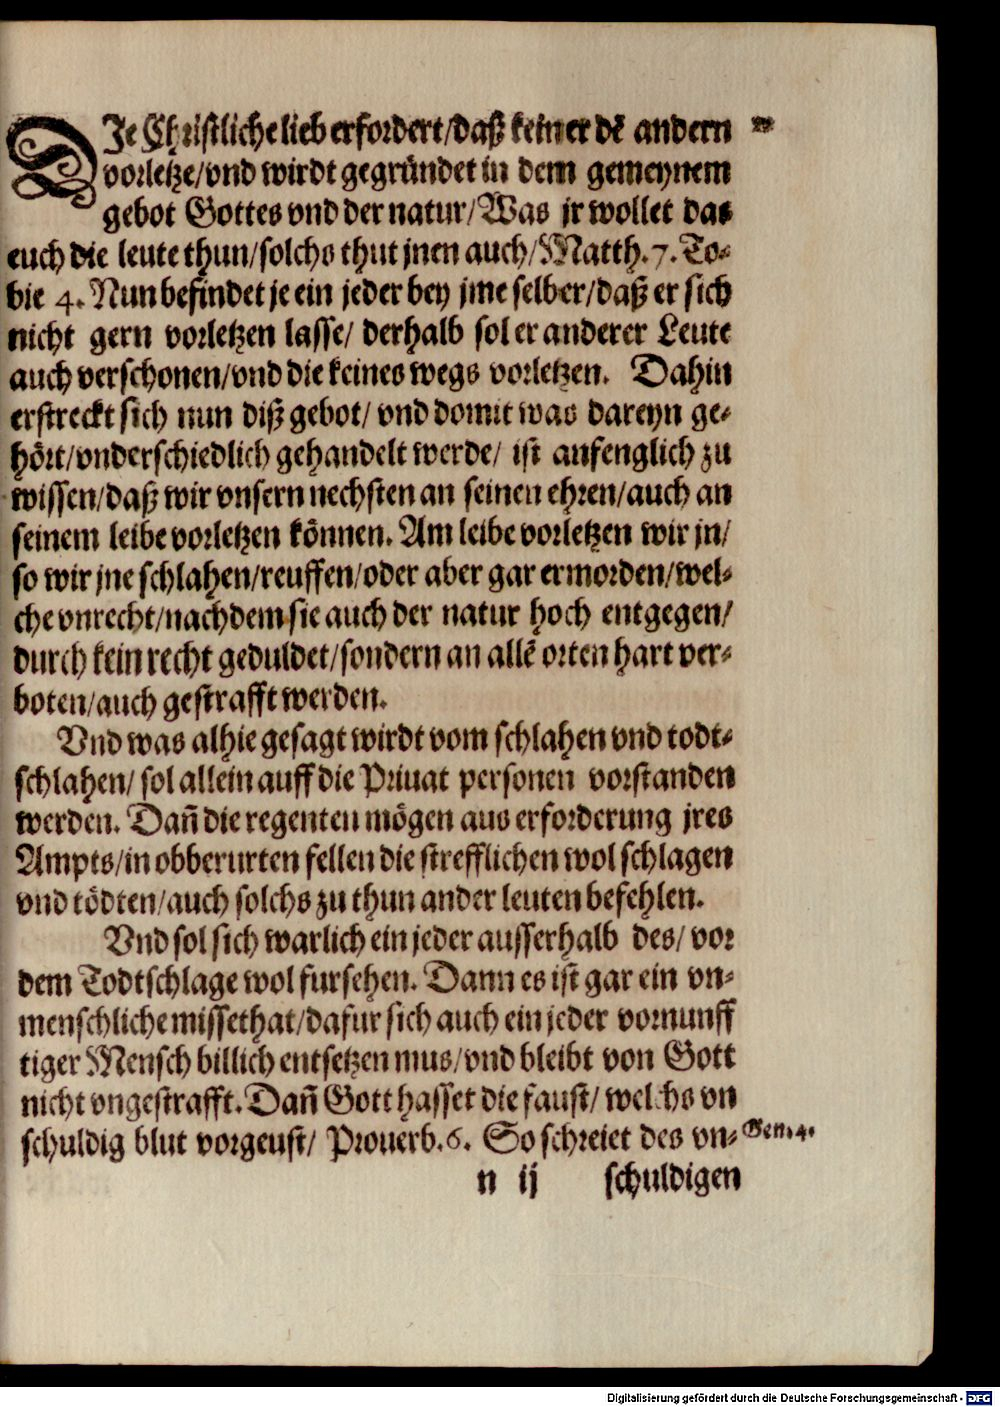 DJe Christliche lieb erfordert/daß keiner dē andern
vorletze/vnd wirdt gegründet in dem gemeynem
gebot Gottes vnd der natur/Was jr wollet das
euch die leute thun/solchs thut jnen auch/Matth.7.To-
bie 4. Nun befindet je ein jeder bey jme selber/daß er sich
nicht gern vorletzen lasse/ derhalb sol er anderer Leute
auch verschonen/vnd die keines wegs vorletzen. Dahin
erstreckt sich nun diß gebot/ vnd domit was dareyn ge-
hört/vnderschiedlich gehandelt werde/ ist anfenglich zu
wissen/daß wir vnsern nechsten an seinen ehren/auch an
seinem leibe vorletzen können. Am leibe vorletzen wir jn/
so wir jne schlahen/reuffen/oder aber gar ermorden/wel-
che vnrecht/nachdem sie auch der natur hoch entgegen/
durch kein recht geduldet/sondern an allē orten hart ver-
boten/auch gestrafft werden.
Vnd was alhie gesagt wirdt vom schlahen vnd todt-
schlahen/ sol allein auff die Priuat personen vorstanden
werden. Dañ die regenten mögen aus erforderung jres
Ampts/in obberurten fellen die strefflichen wol schlagen
vnd tödten/auch solchs zu thun ander leuten befehlen.
Vnd sol sich warlich ein jeder ausserhalb des/ vor
dem Todtschlage wol fursehen. Dann es ist gar ein vn-
menschliche missethat/dafur sich auch ein jeder vornunff
tiger Mensch billich entsetzen mus/vnd bleibt von Gott
nicht vngestrafft. Dañ Gott hasset die faust/ welchs vn
schuldig blut vorgeust/ Prouerb.6. So schreiet des vn- Gen.4.
n ij schuldigen
Digitalisierung gefördert durch die Deutsche Forschungsgemeinschaft - DFG